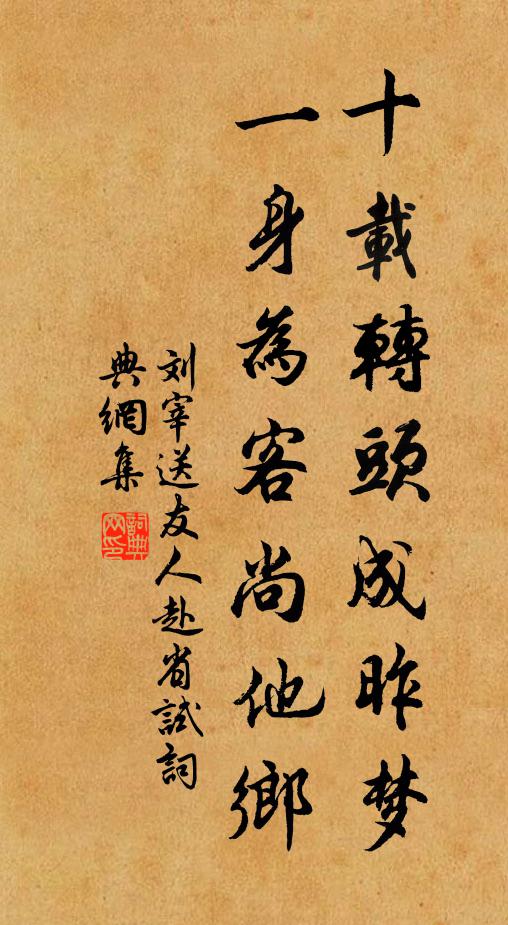 十載轉頭成昨梦
一身為客尚他鄉
刘宰送友人赴省試詞
典網集
詞典网印